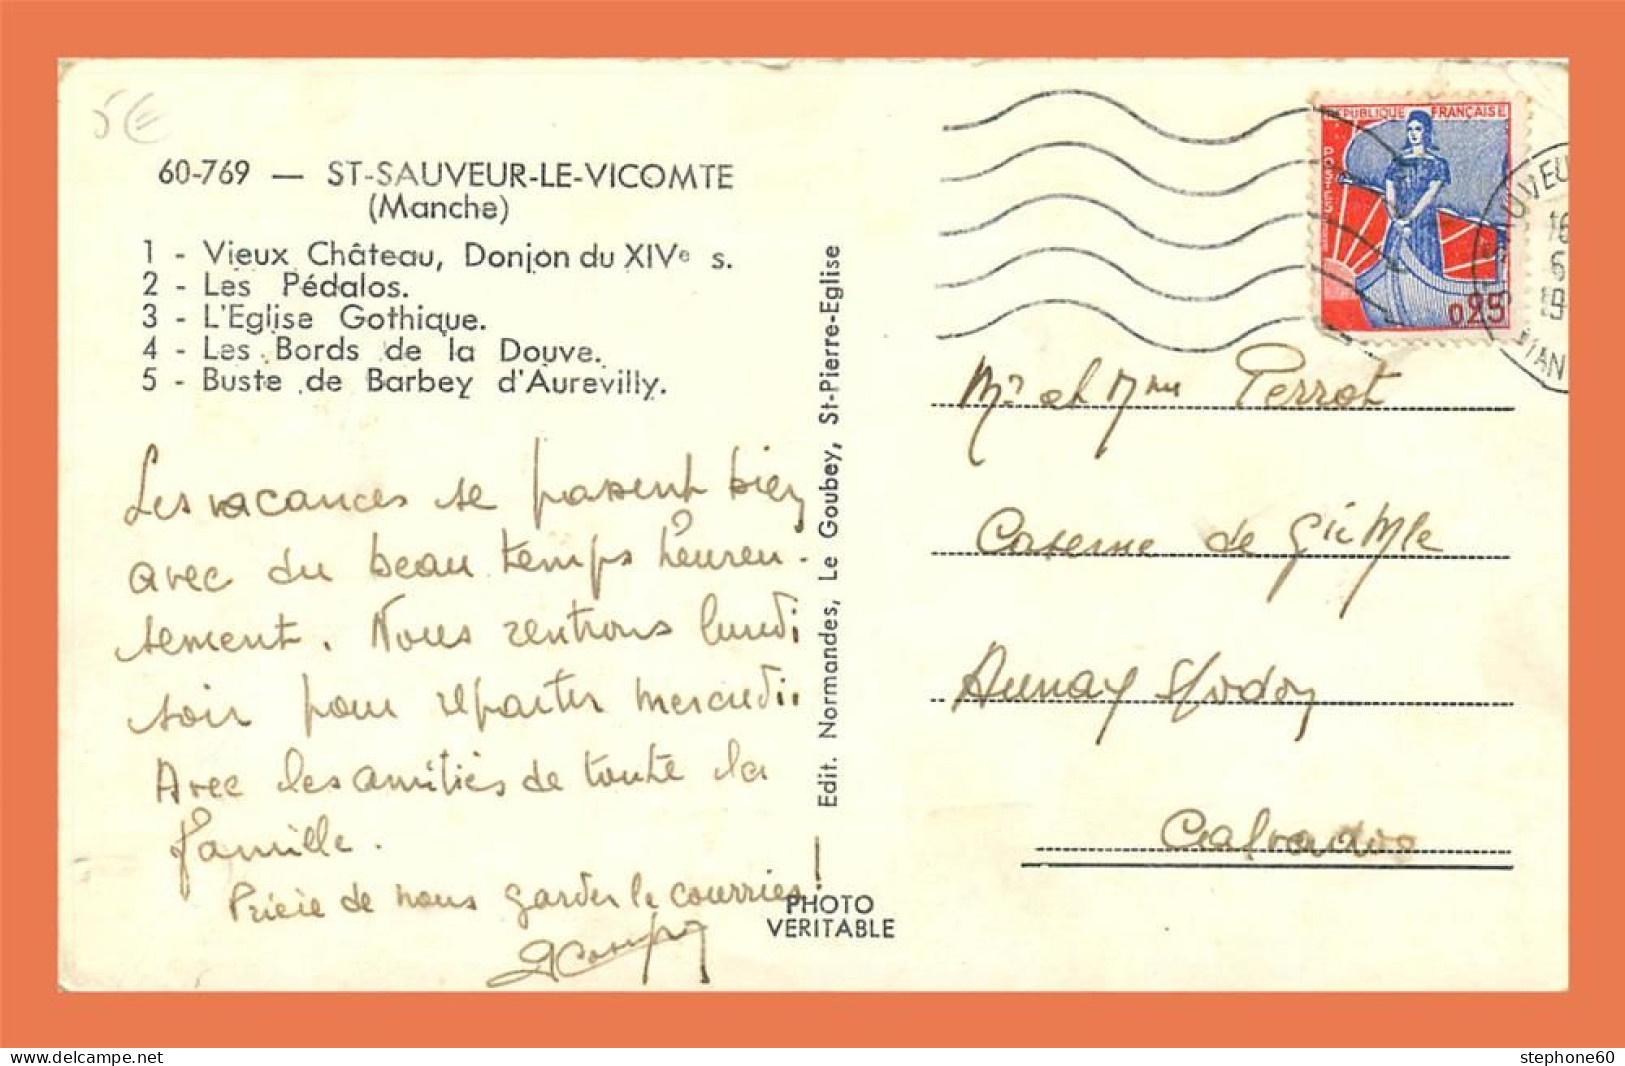 5€
60-769 — ST-SAUVEUR-LE-VICOMTE
(Manche)
1 - Vieux Château, Donjon du XIVe s.
2 - Les Pédalos.
3 - L'Eglise Gothique.
4 - Les Bords de la Douve.
5 - Buste de Barbey d'Aurevilly.
Les vacances se passent bien
avec du beau temps heureu-
sement. Nous rentrons lundi
soir pour repartir mercredi.
Avec les amitiés de toute la
famille.
Prière de nous garder le courrier!
Edit. Normandes, Le Goubey, St-Pierre-Eglise
PHOTO
VERITABLE
REPUBLIQUE FRANÇAISE
POSTES
0,25
UVEU
16
6
19
MAN
Mr et Mme Perrot
Caserne de Gie Mle
Aunay s/odon
Calvados
delcampe.net
stephone60